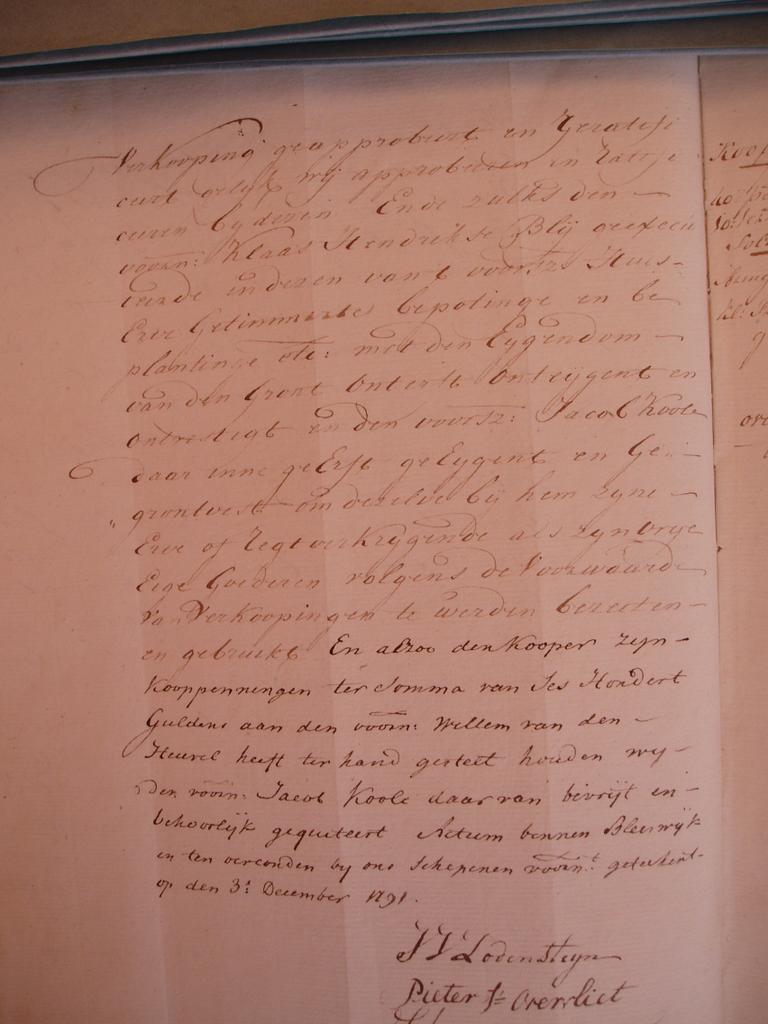 Verkooping geapprobeert en Geratifi
ceert gelyk wij approbeeren en Ratifi
ceeren by dezen Ende zulks den
voorn: Klaas Hendrikse Blij geexecu
teerde in dezen van't voorsz: Huis
Erve Getimmertes bepotinge en be
plantinge etc: met den Eygendom
van den Gront Onterft Onteijgent en
ontvestigt en den voorsz: Jacob Koole
daar inne geErft geEygent en Ge
grontvest om dezelve bij hem zyne
Erve of Regtverkrygende als zyn vrye
Eige Goederen volgens de Voorwaarde
van Verkoopingen te werden bezeten
en gebruikt En alzoo den Kooper zyn
Kooppenningen ter Somma van Ses Hondert
Guldens aan den voorn: Willem van den
Heuvel heeft ter hand gestelt houden wy
Den voorn: Jacob Koole daar van bevrijt en
behoorlyk gequiteert Actum binnen Bleiswyk
en ten oirconden by ons Schepenen voorn:t getekent
op den 3: December 1791.
Lodensteyn
Pieter Js Overvliet
Koop